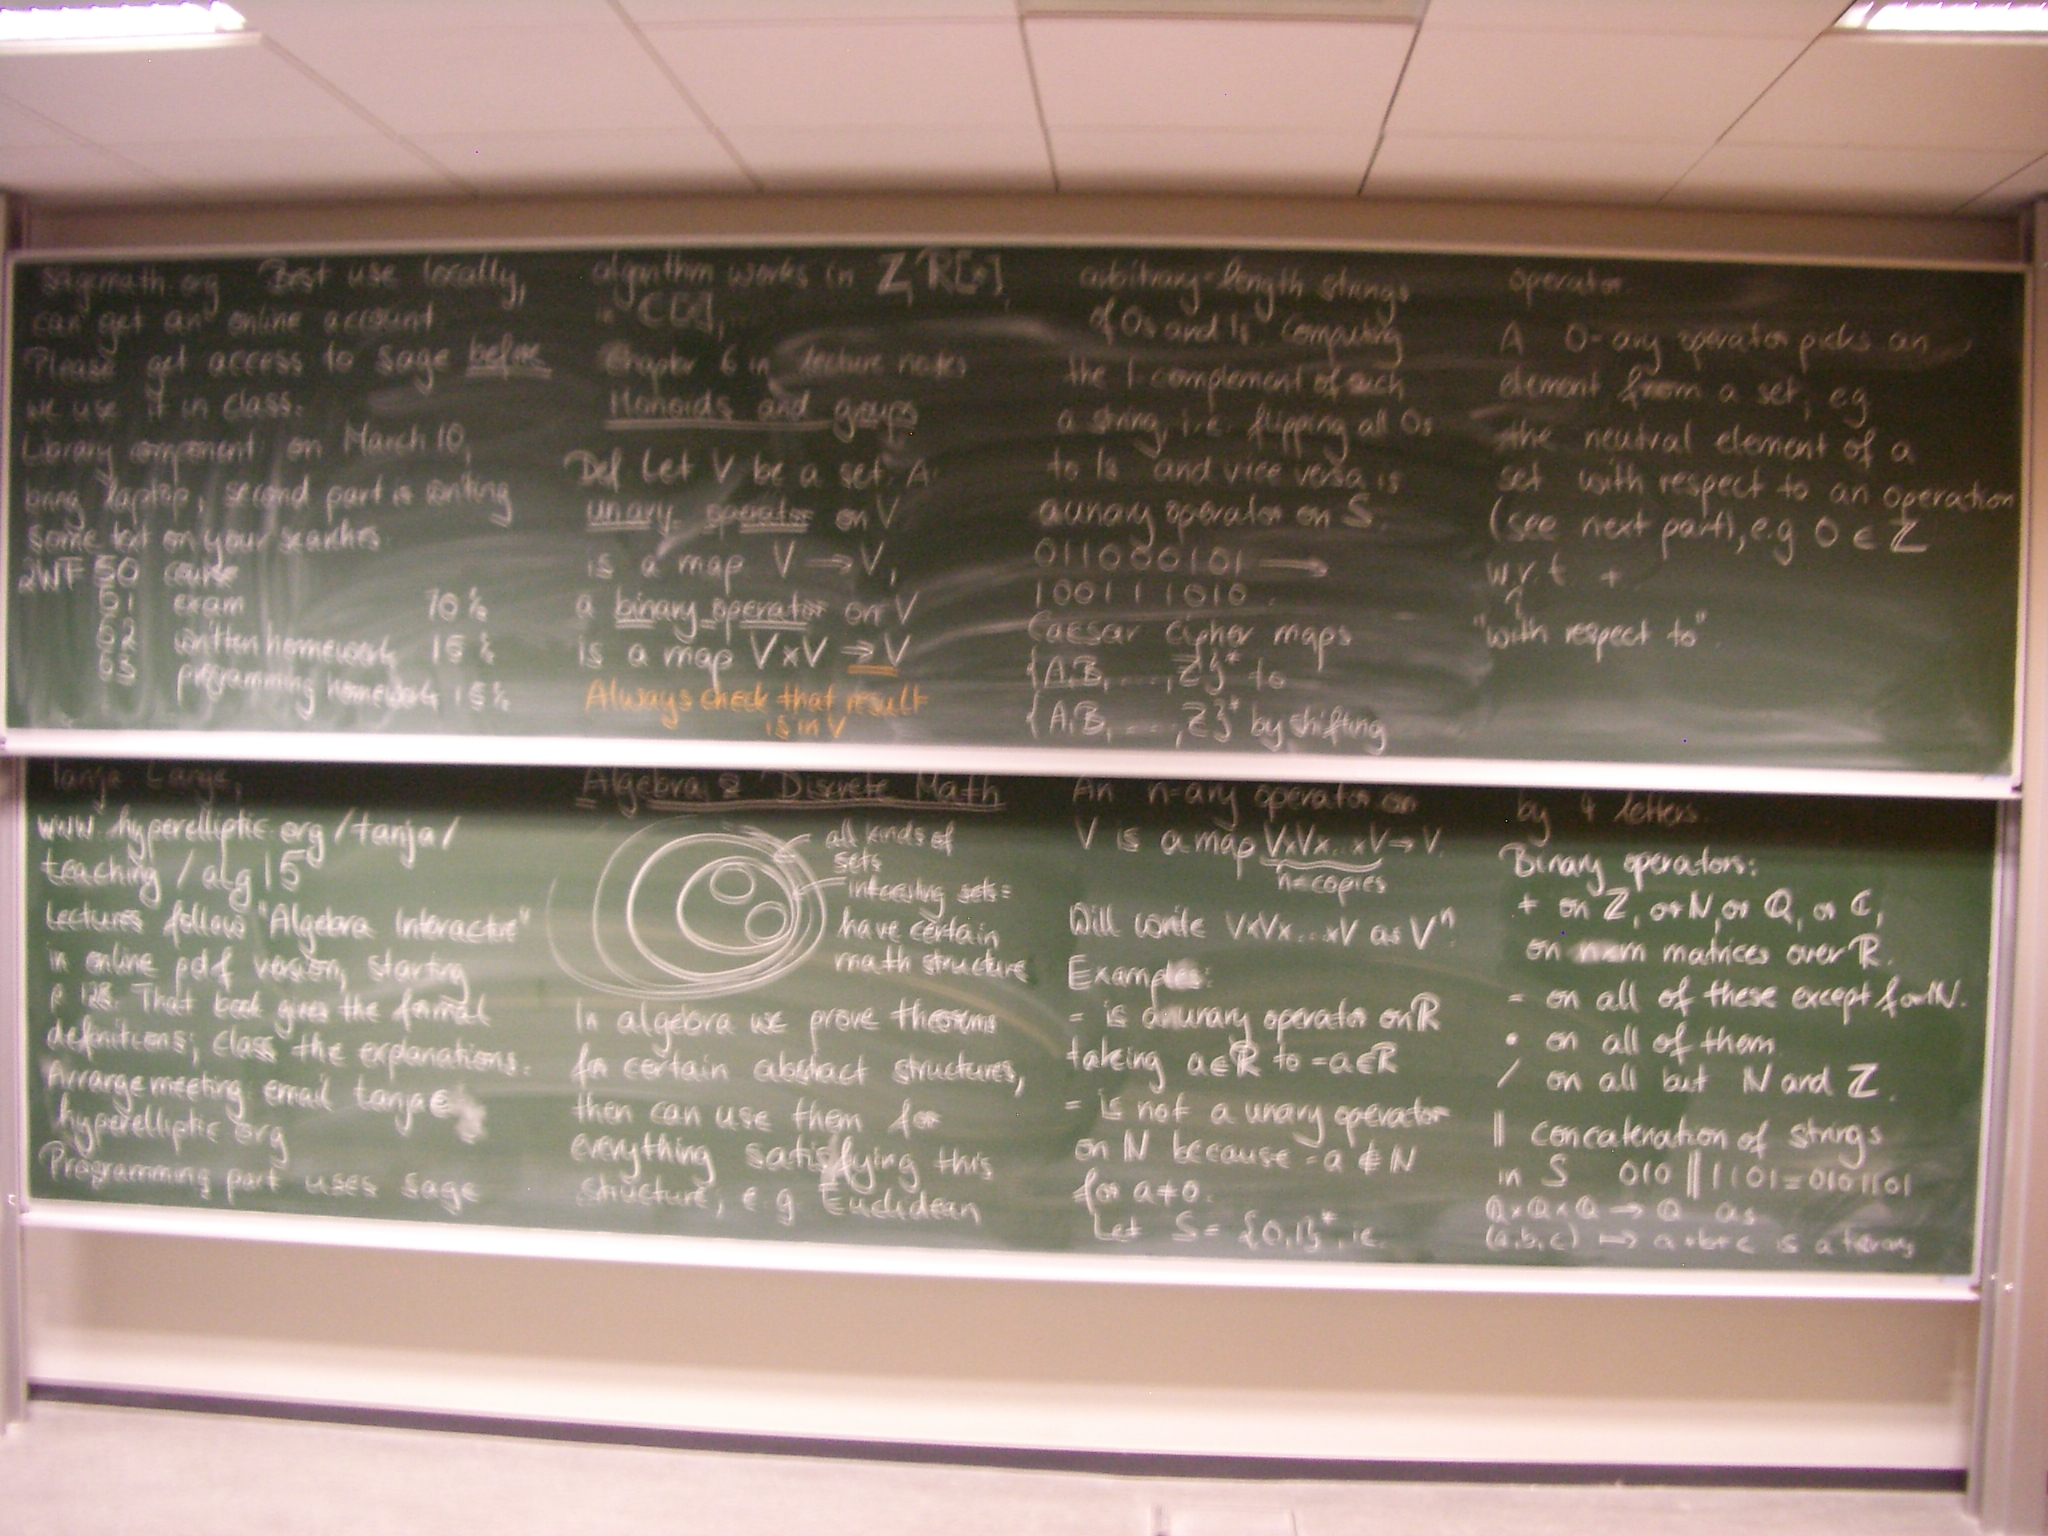 Tanja Lange,
www.hyperelliptic.org/tanja/
teaching/alg15
Lectures follow "Algebra Interactive"
in online pdf version, starting
p 128. That book gives the formal
definitions; class the explanations.
Arrange meeting: email tanja@
hyperelliptic.org
Programming part uses sage
sagemath.org Best use locally,
can get an online account
Please get access to sage before
we use it in class.
Library component on March 10,
bring laptop; second part is writing
some text on your searches.
2WF 50 course
51 exam 70%
52 written homework 15%
53 programming homework 15%
Algebra & Discrete Math
all kinds of
sets
interesting sets:
have certain
math structure
In algebra we prove theorems
for certain abstract structures,
then can use them for
everything satisfying this
structure, e.g. Euclidean
algorithm works in Z, R[x],
C[x],
Chapter 6 in lecture notes
Monoids and groups
Def Let V be a set. A
unary operator on V
is a map V → V,
a binary operator on V
is a map V×V → V
Always check that result
is in V
An n-ary operator on
V is a map V×V×...×V → V.
n-copies
Will write V×V×...×V as Vⁿ.
Examples:
- is a unary operator on R
taking a∈R to -a∈R
- is not a unary operator
on N because -a ∉ N
for a≠0.
Let S = {0,1}*, i.e.
arbitrary-length strings
of 0s and 1s. Computing
the 1-complement of such
a string, i.e. flipping all 0s
to 1s and vice versa is
a unary operator on S.
011000101 →
100111010.
Caesar cipher maps
{A,B,...,Z}* to
{A,B,...,Z}* by shifting
by 4 letters.
Binary operators:
+ on Z, or N, or Q, or C,
on n×m matrices over R.
- on all of these except for N.
• on all of them
/ on all but N and Z.
|| concatenation of strings
in S 010 || 1101 = 0101101
Q×Q×Q → Q as
(a,b,c) ↦ a+b+c is a ternary
operator.
A 0-ary operator picks an
element from a set, e.g
the neutral element of a
set with respect to an operation
(see next part), e.g 0 ∈ Z
w.r.t. +
↑
"with respect to"